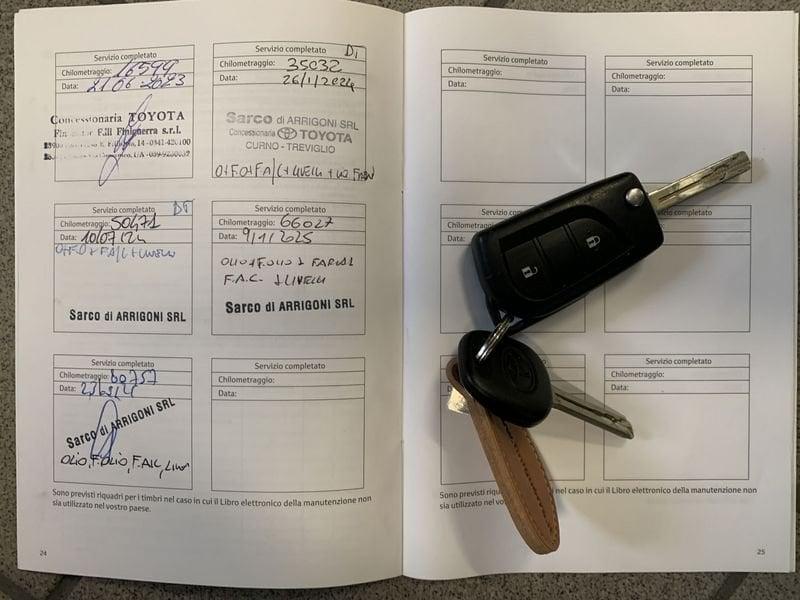 Servizio completato
Chilometraggio: 16599
Data: 21 06 2023
Concessionaria TOYOTA
F.lli Finiguerra s.r.l.
Servizio completato
D1
Chilometraggio: 35032
Data: 26/1/2024
Sarco di ARRIGONI SRL
Concessionaria TOYOTA
CURNO - TREVIGLIO
Servizio completato
Chilometraggio: 50471
Data: 10/07/24
Sarco di ARRIGONI SRL
Servizio completato
Chilometraggio: 66027
Data: 9/1/2025
OLIO + F.OLIO +
F.A.C. + LIVELLI
Sarco di ARRIGONI SRL
Servizio completato
Chilometraggio:
Data:
Sarco di ARRIGONI SRL
OLIO, F.OLIO, F.A/C,
Servizio completato
Chilometraggio:
Data:
Sono previsti riquadri per i timbri nel caso in cui il Libro elettronico della manutenzione non
sia utilizzato nel vostro paese.
24
Servizio completato
Chilometraggio:
Data:
Servizio completato
Chilometraggio:
Data:
Servizio completato
Servizio completato
Servizio completato
Chilometraggio:
Data:
Sono previsti nel caso in cui il Libro elettronico della manutenzione non
sia utilizzato nel
25